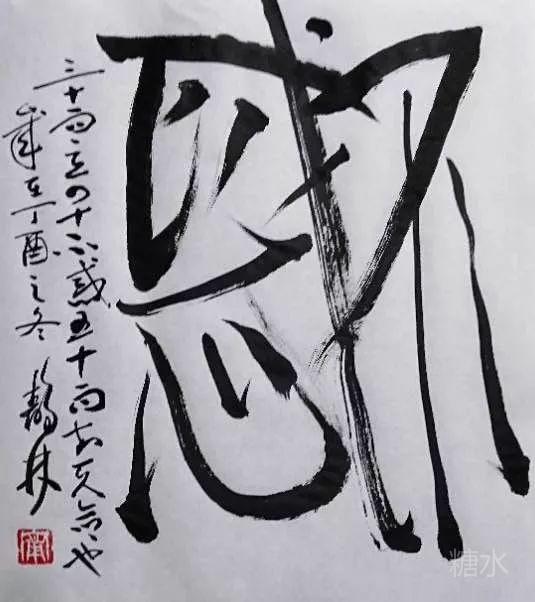 不惑
三十而立四十不惑五十而知天命也
岁在丁酉之冬
糖水